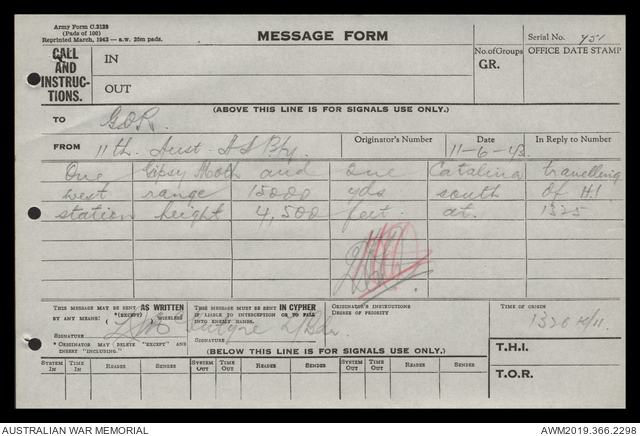 Army Form C.2128
(Pads of 100)
Reprinted March, 1942 — a.w. 25m pads.
MESSAGE FORM
Serial No. 451
CALL AND INSTRUCTIONS.
IN
OUT
No. of Groups
GR.
OFFICE DATE STAMP
(ABOVE THIS LINE IS FOR SIGNALS USE ONLY.)
TO G.O.R.
FROM 11th. Aust. A S Bty.
Originator's Number
Date
11-6-43
In Reply to Number
One Gipsy Moth and one Catalina travelling
west range 15000 yds south of H.1
station height 4,500 feet. at. 1325
THIS MESSAGE MAY BE SENT AS WRITTEN
BY ANY MEANS: * (EXCEPT) WIRELESS
SIGNATURE
* ORIGINATOR MAY DELETE "EXCEPT" AND
INSERT "INCLUDING."
THIS MESSAGE MUST BE SENT IN CYPHER
IF LIABLE TO INTERCEPTION OR TO FALL
INTO ENEMY HANDS.
SIGNATURE
ORIGINATOR'S INSTRUCTIONS
DEGREE OF PRIORITY
TIME OF ORIGIN
1326
T.H.I.
T.O.R.
(BELOW THIS LINE IS FOR SIGNALS USE ONLY.)
SYSTEM IN TIME IN READER SENDER SYSTEM OUT TIME OUT READER SENDER SYSTEM OUT TIME OUT READER SENDER
AUSTRALIAN WAR MEMORIAL
AWM2019.366.2298